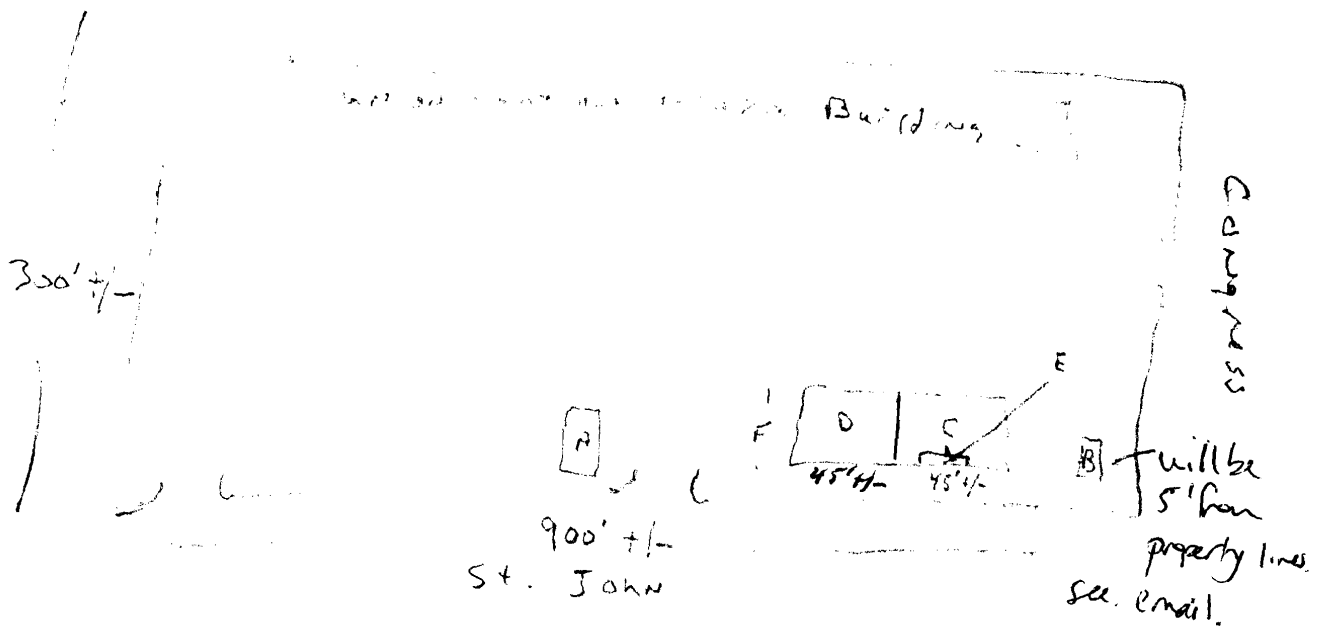 Building
Congress
300' +/-
E
F
D
C
A
B
45' +/-
45' +/-
will be
5' from
property lines.
see email.
900' +/-
St. John